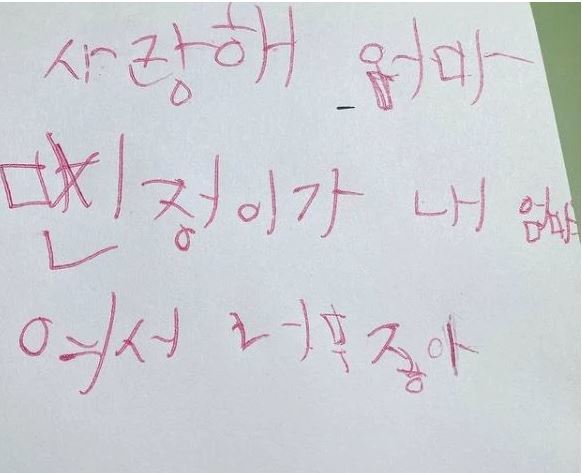 사랑해 엄마
민정이가 내 엄마
여서 너무 좋아